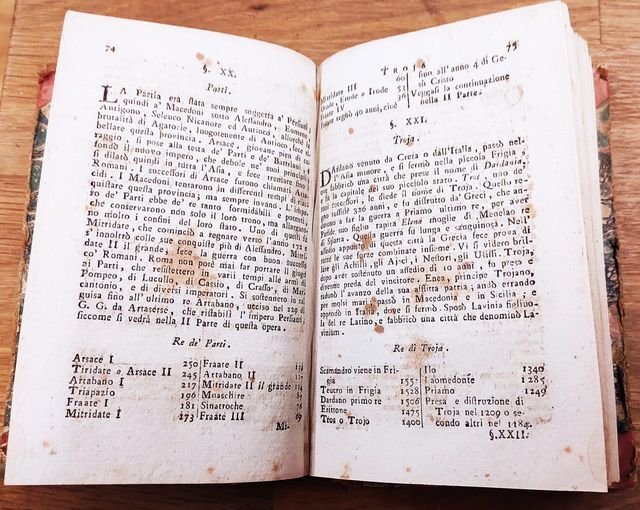 74
§. XX.
Parti.
LA Partia era stata sempre soggetta a' Persiani,
quindi a' Macedoni sotto Alessandro, Eumene,
Antigono, Seleuco Nicanore ed Antioco allorchè la
brutalità di Agatocle, luogotenente di Antioco, fece ri-
bellare questa provincia. Arsace, giovane pien di co-
raggio, si pose alla testa de' Parti e de' Battriani,
fondò il nuovo impero, che debole ne' suoi principj
si dilatò quindi in tutta l'Asia, e fece tremare fino i
Romani. I successori di Arsace furono chiamati Arsa-
cidi. I Macedoni tentarono in differenti tempi di riac-
quistare questa provincia; ma sempre invano. L'impe-
ro de' Parti ebbe de' re tanto formidabili e potenti,
che conservarono non solo il loro trono, ma allargaro-
no molto i confini del loro stato. Uno di questi fu
Mitridate, che cominciò a regnare verso l'anno 172 e
s' innoltrò colle sue conquiste più di Alessandro. Mitri-
date II il grande, fece la guerra con buon successo
co' Romani. Roma non potè mai far portare il giogo
ai Parti, che resistettero in varj tempi alle armi di
Pompeo, di Lucullo, di Cassio, di Crasso, di Mar-
cantonio, e di diversi imperatori. Si sostennero in tal
guisa fino all'ultimo re Artabano, ucciso nel 229 di
G. G. da Artaserse, che ristabilì l'impero Persiano;
siccome si vedrà nella II Parte di questa opera.
Re de' Parti.
Arsace I 250
Tiridate o Arsace II 245
Artabano I 217
Triapazio 196
Fraate I 181
Mitridate I 173
Fraate II
Artabano II
Mitridate II il grande
Mnaschire
Sinatroche 76
Fraate III 69
Mi-
TROJA 75
Mitridate III 60
Orode, Erode o Irode 53
Fraate IV 36
Fraate regnò 40 anni, cioè
fino all'anno 4 di Ge-
sù Cristo
Veggasi la continuazione
nella II Parte.
§. XXI.
Troja.
DArdano venuto da Creta o dall'Italia, passò nel-
l'Asia minore, e si fermò nella piccola Frigia;
vi fabbricò una città che prese il nome di Dardania,
e fu la capitale del suo picciolo stato. Tros, uno de'
suoi successori, le diede il nome di Troja. Questo re-
gno sussistè 326 anni, e fu distrutto da' Greci, che an-
darono a far la guerra a Priamo ultimo re, per aver
Paride suo figlio rapita Elena moglie di Menelao re
di Sparta. Questa guerra fu lunga e sanguinosa. Nell'
assedio appunto di questa città la Grecia fece prova di
tutte le sue forze combinate insieme. Vi si videro bril-
lare gli Achilli, gli Ajaci, i Nestori, gli Ulissi. Troja,
dopo aver sostenuto un assedio di 10 anni, fu presa e
divenne preda del vincitore. Enea, principe Trojano,
radunò l'avanzo della sua afflitta patria; andò errando
per molti mari, passò in Macedonia e in Sicilia, e
approdò in Italia, dove si fermò. Sposò Lavinia figliuo-
la del re Latino, e fabbricò una città che denominò La-
vinium.
Re di Troja.
Scamandro viene in Fri-
gia 155-
Teucro in Frigia 1528
Dardano primo re 1506
Erittone 1475
Tros o Trojo 1400
Ilo 1340
Laomedonte 1285
Priamo 1249
Presa e distruzione di
Troja nel 1209 o se-
condo altri nel 1184.
§.XXII.